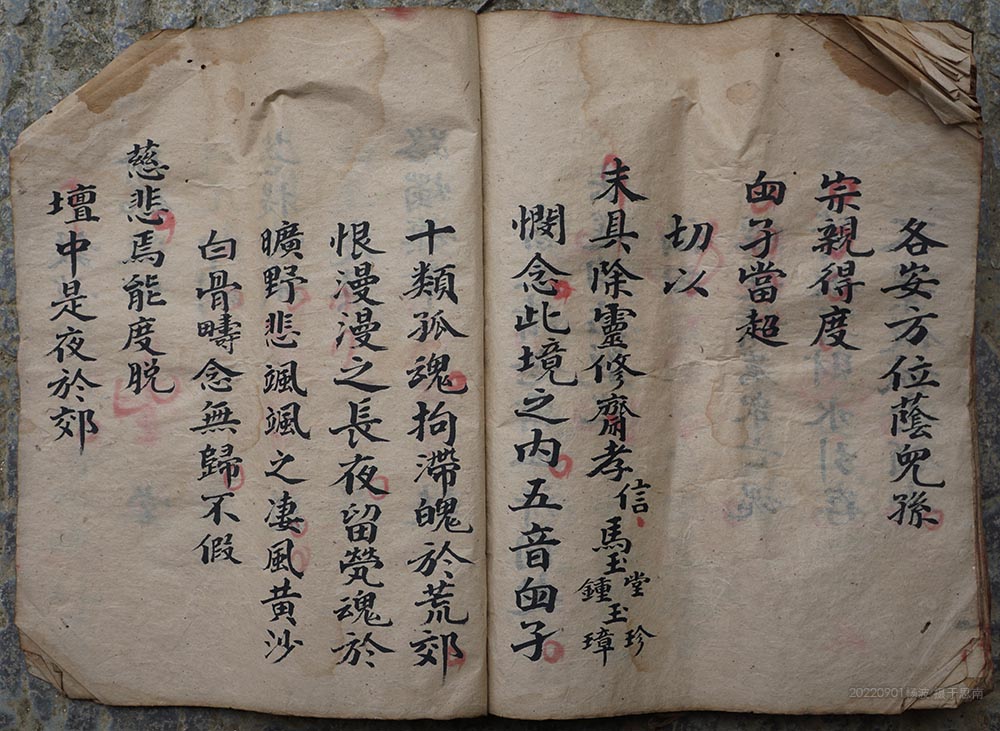 各安方位蔭兒孫
宗親得度
子當超
切以
未具除靈修齋孝信馬玉堂鍾玉珍璋
憫念此境之內五音子
十類孤魂拘滯魄於荒郊
恨漫漫之長夜留煢魂於
曠野悲颯颯之凄風黃沙
白骨疇念無歸不假
慈悲焉能度脫
壇中是夜於郊
20220901 于思南